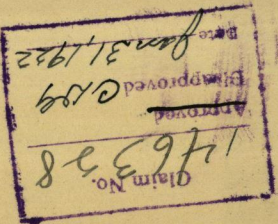 Claim No.
146358
Approved
Disapproved
Date Jan 31, 1922